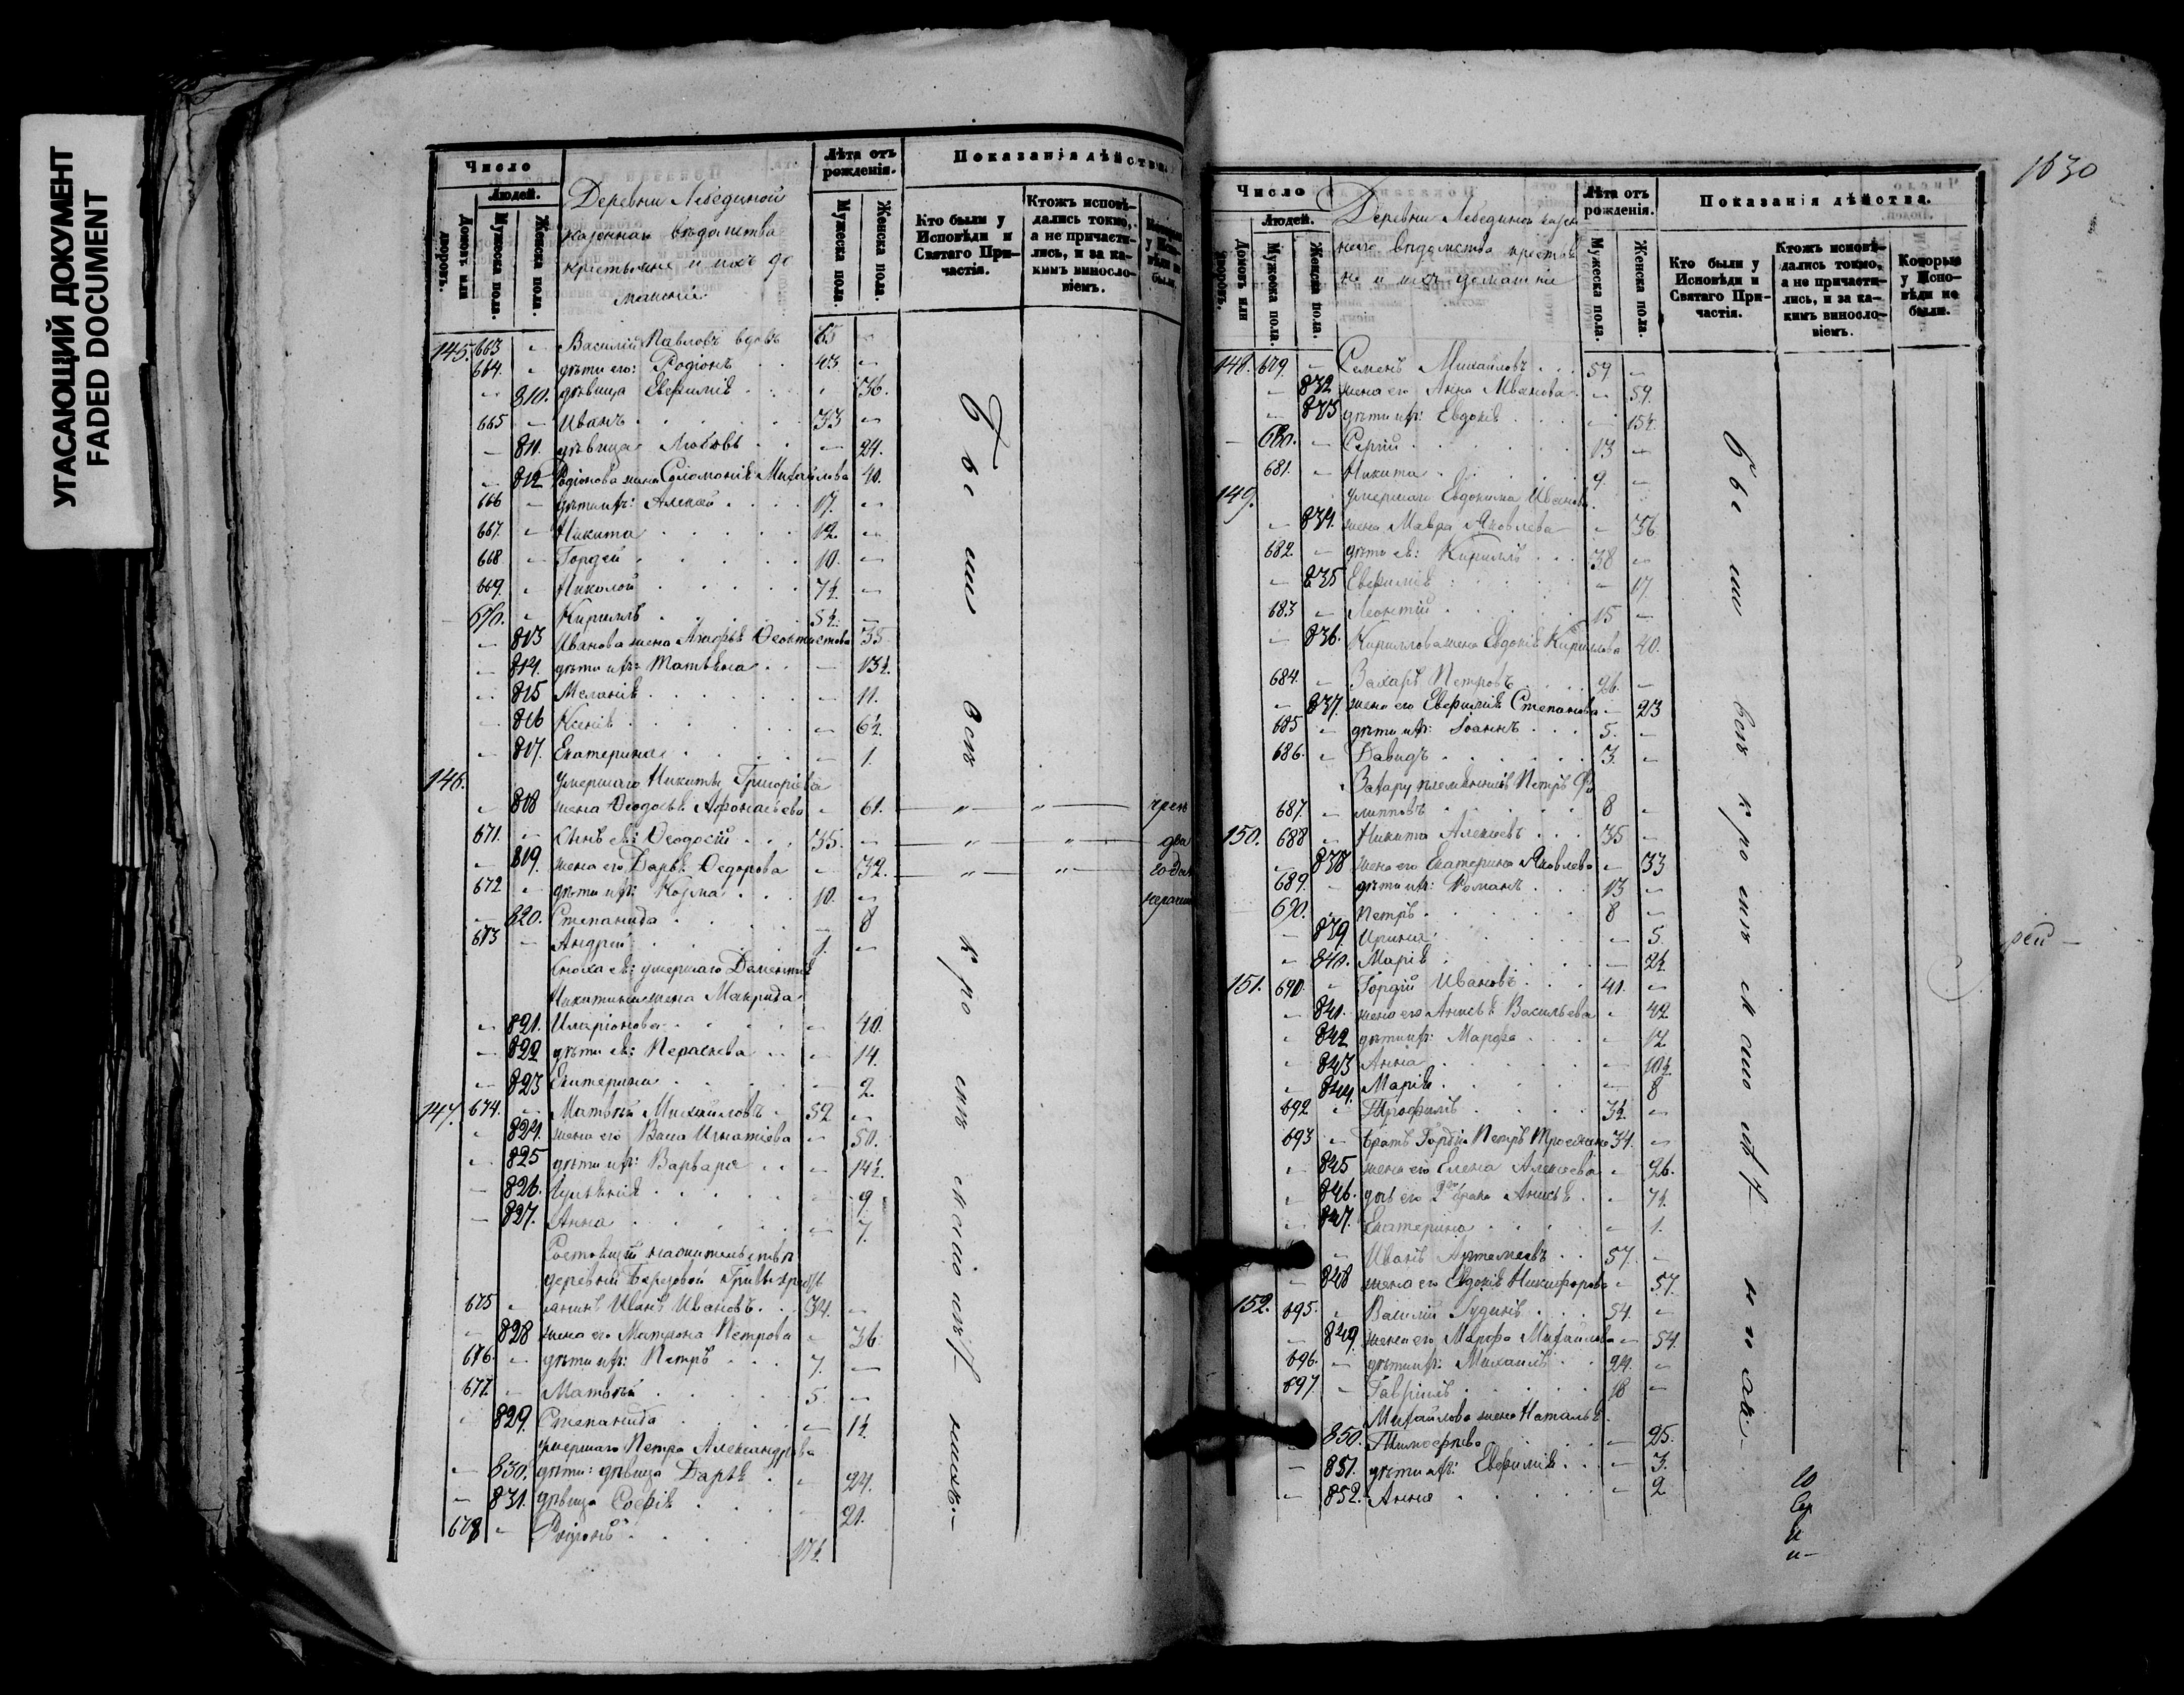 УГАСАЮЩИЙ ДОКУМЕНТ
FADED DOCUMENT
Число
Людей.
Домовъ или дворовъ.
Мужеска пола.
Женска пола.
Деревни Лебединой
казеннаго вѣдомства
крестьяне и ихъ до
машніи
Лѣта отъ рожденія.
Мужеска пола.
Женска пола.
Показанія дѣйства.
Кто были у Исповѣди и Святаго Причастія.
Ктожъ исповѣдались токмо, а не причастились, и за какимъ винословіемъ.
145. 663 Василій Павловъ вдовъ 65
664. дѣти его: Родіонъ 43
810. дѣвица Евфимія 36.
665 Иванъ 33
811. дѣвица Любовь 24.
812 Родіонова жена Соломонія Михайлова 40.
666 дѣти ихъ: Алексѣй 17.
667. Никита 12.
668 Гордей 10.
669. Николай 7½
670. Кириллъ 5½
813 Иванова жена Агафья Феоктистова 35
814. дѣти ихъ: Татьяна 13½.
815 Меланія 11.
816 Ксенія 6½
817. Екатерина 1.
146. умершаго Никиты Григорьева
818 жена Феодосья Афонасьева 61. чрезъ
671. сынъ ея: Феодосій 35. два
819. жена его Дарья Федорова 32. года
672 дѣти ихъ: Козма 10.
820. Степанида 8
673 Андрей 1.
сноха ея: умершаго Дементія
Никитина жена Макрида
821. Иларіонова 40.
822 дѣти ея: Параскева 14.
823 Екатерина 2.
147. 674. Матвѣй Михайловъ 52
824. жена его Васа Игнатіева 50.
825 дѣти ихъ: Варвара 14½.
826. 9
827. Анна 7.
деревни Березовой Гривы кресть
675 янинъ Иванъ Ивановъ. 34.
828 жена его Матрона Петрова 36
676. дѣти ихъ: Петръ 7.
677. Матвѣй 5.
829. Степанида 1½
умершаго Петра Александрова
830. дѣти: дѣвица Дарья 24.
831. дѣвица Софія 21.
678 Родіонъ 17½
Были вси кро ихъ
1630
Число
Людей.
Домовъ или дворовъ.
Мужеска пола.
Женска пола.
Деревни Лебединой казен
наго вѣдомства крестья
не и ихъ домашніи
Лѣта отъ рожденія.
Мужеска пола.
Женска пола.
Показанія дѣйства.
Кто были у Исповѣди и Святаго Причастія.
Ктожъ исповѣдались токмо, а не причастились, и за какимъ винословіемъ.
Которые у Исповѣди не были.
148. 679. Семенъ Михайловъ 59
832 жена его Анна Иванова 59.
833 дѣти ихъ: Евдокія 15½.
680. Сергій 13
681. Никита 9.
149. умершаго Евдокима Иванова
834. жена Мавра Яковлева 56
682. дѣти ея: Кириллъ 38
835 Евфимія 17
683 Леонтій 15
836. Кириллова жена Евдокія Кириллова 40.
684. Захаръ Петровъ 26.
837. жена его Евфимія Степанова 23
685 дѣти ихъ: Іоаннъ 5.
686. Давидъ 3.
Захару племянникъ Петръ Фи
687. липповъ 8
150. 688 Никита Алексѣевъ 35
838 жена его Екатерина Яковлева 33
689. дѣти ихъ: Романъ 13
690. Петръ 8
839. Ирина 5.
840. Марія 2½
151. 690 Гордій Ивановъ 41.
841. жена его Анисья Васильева 42
842 дѣти ихъ: Марфа 12
843 Анна 10½
844. Марія 8
692 Трофимъ 3½.
693 братъ Гордія Петръ 34.
845 жена его Елена Алексѣева 26.
846. дочь его 2го брака Анисья 7½.
847. Екатерина 1.
Иванъ Артемьевъ 57.
848 жена его Евдокія Никифорова 57.
152. 695. Василій Гудинъ 54.
849. жена его Марфа Михайлова 54.
696. дѣти ихъ: Михаилъ 24.
697 Гавріилъ 18
Михайлова жена Наталья
850. Тимоѳеева 25.
851. дѣти ихъ: Евфимія 3.
852. Анна 2.
Были